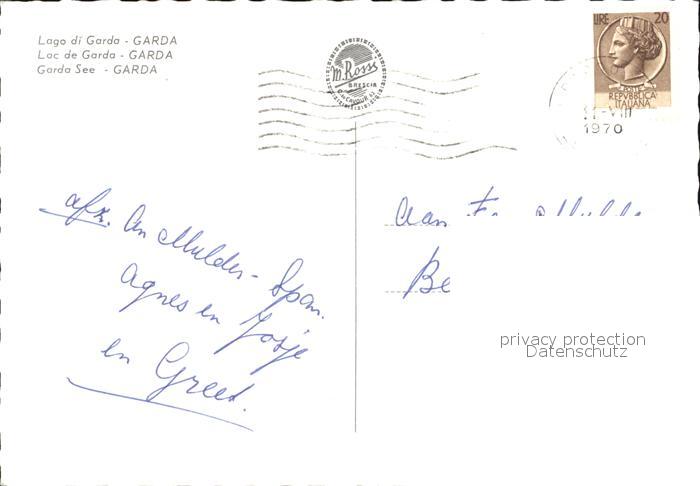 Lago di Garda - GARDA
Lac de Garda - GARDA
Garda See - GARDA
M. Rossi
BRESCIA
LIRE 20
POSTE
REPVBBLICA
ITALIANA
11-VIII
1970
afz. An Mulder-Span.
Agnes en Josje
en Greet.
Aan
Be
privacy protection
Datenschutz